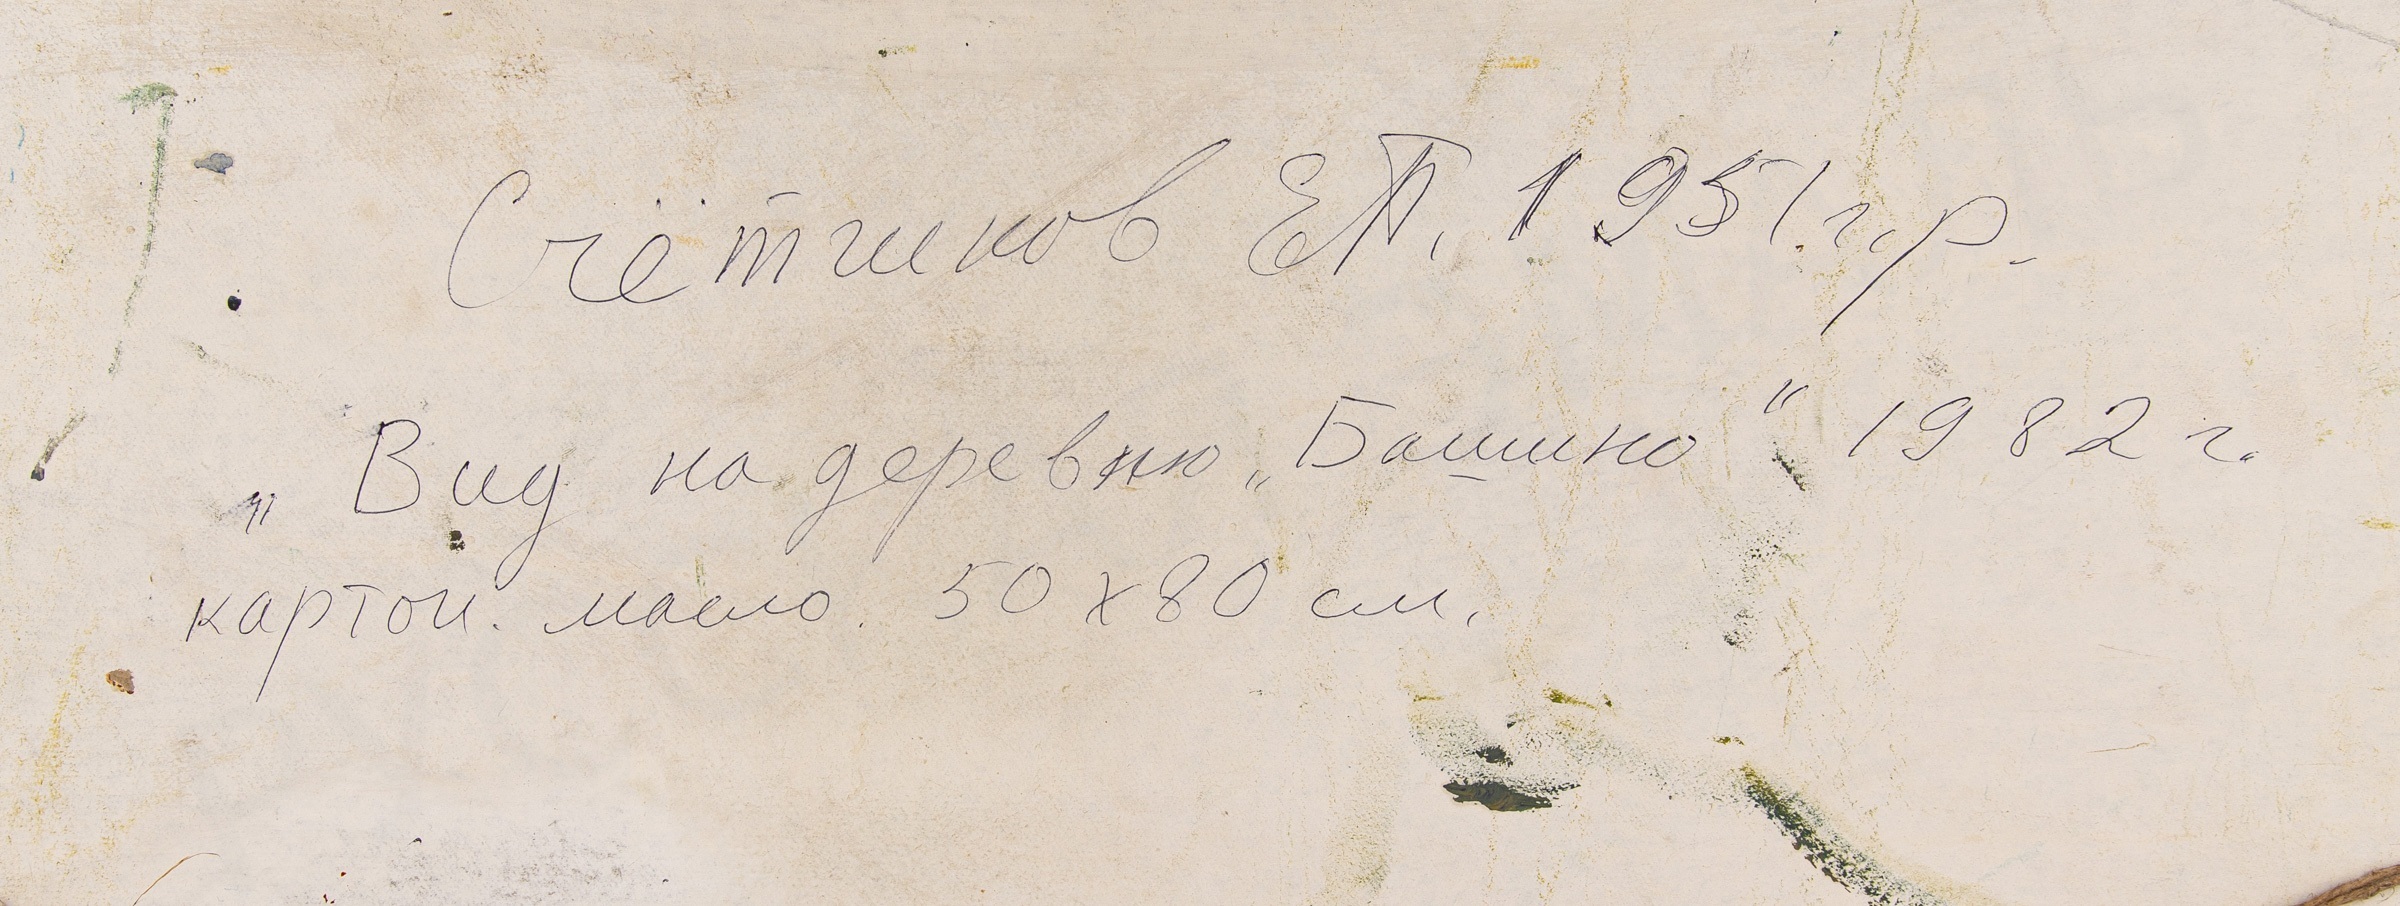 Счётчиков ЕП. 1951 г.р.
„Вид на деревню „Башино" 1982 г.
картон. масло. 50 х 80 см.